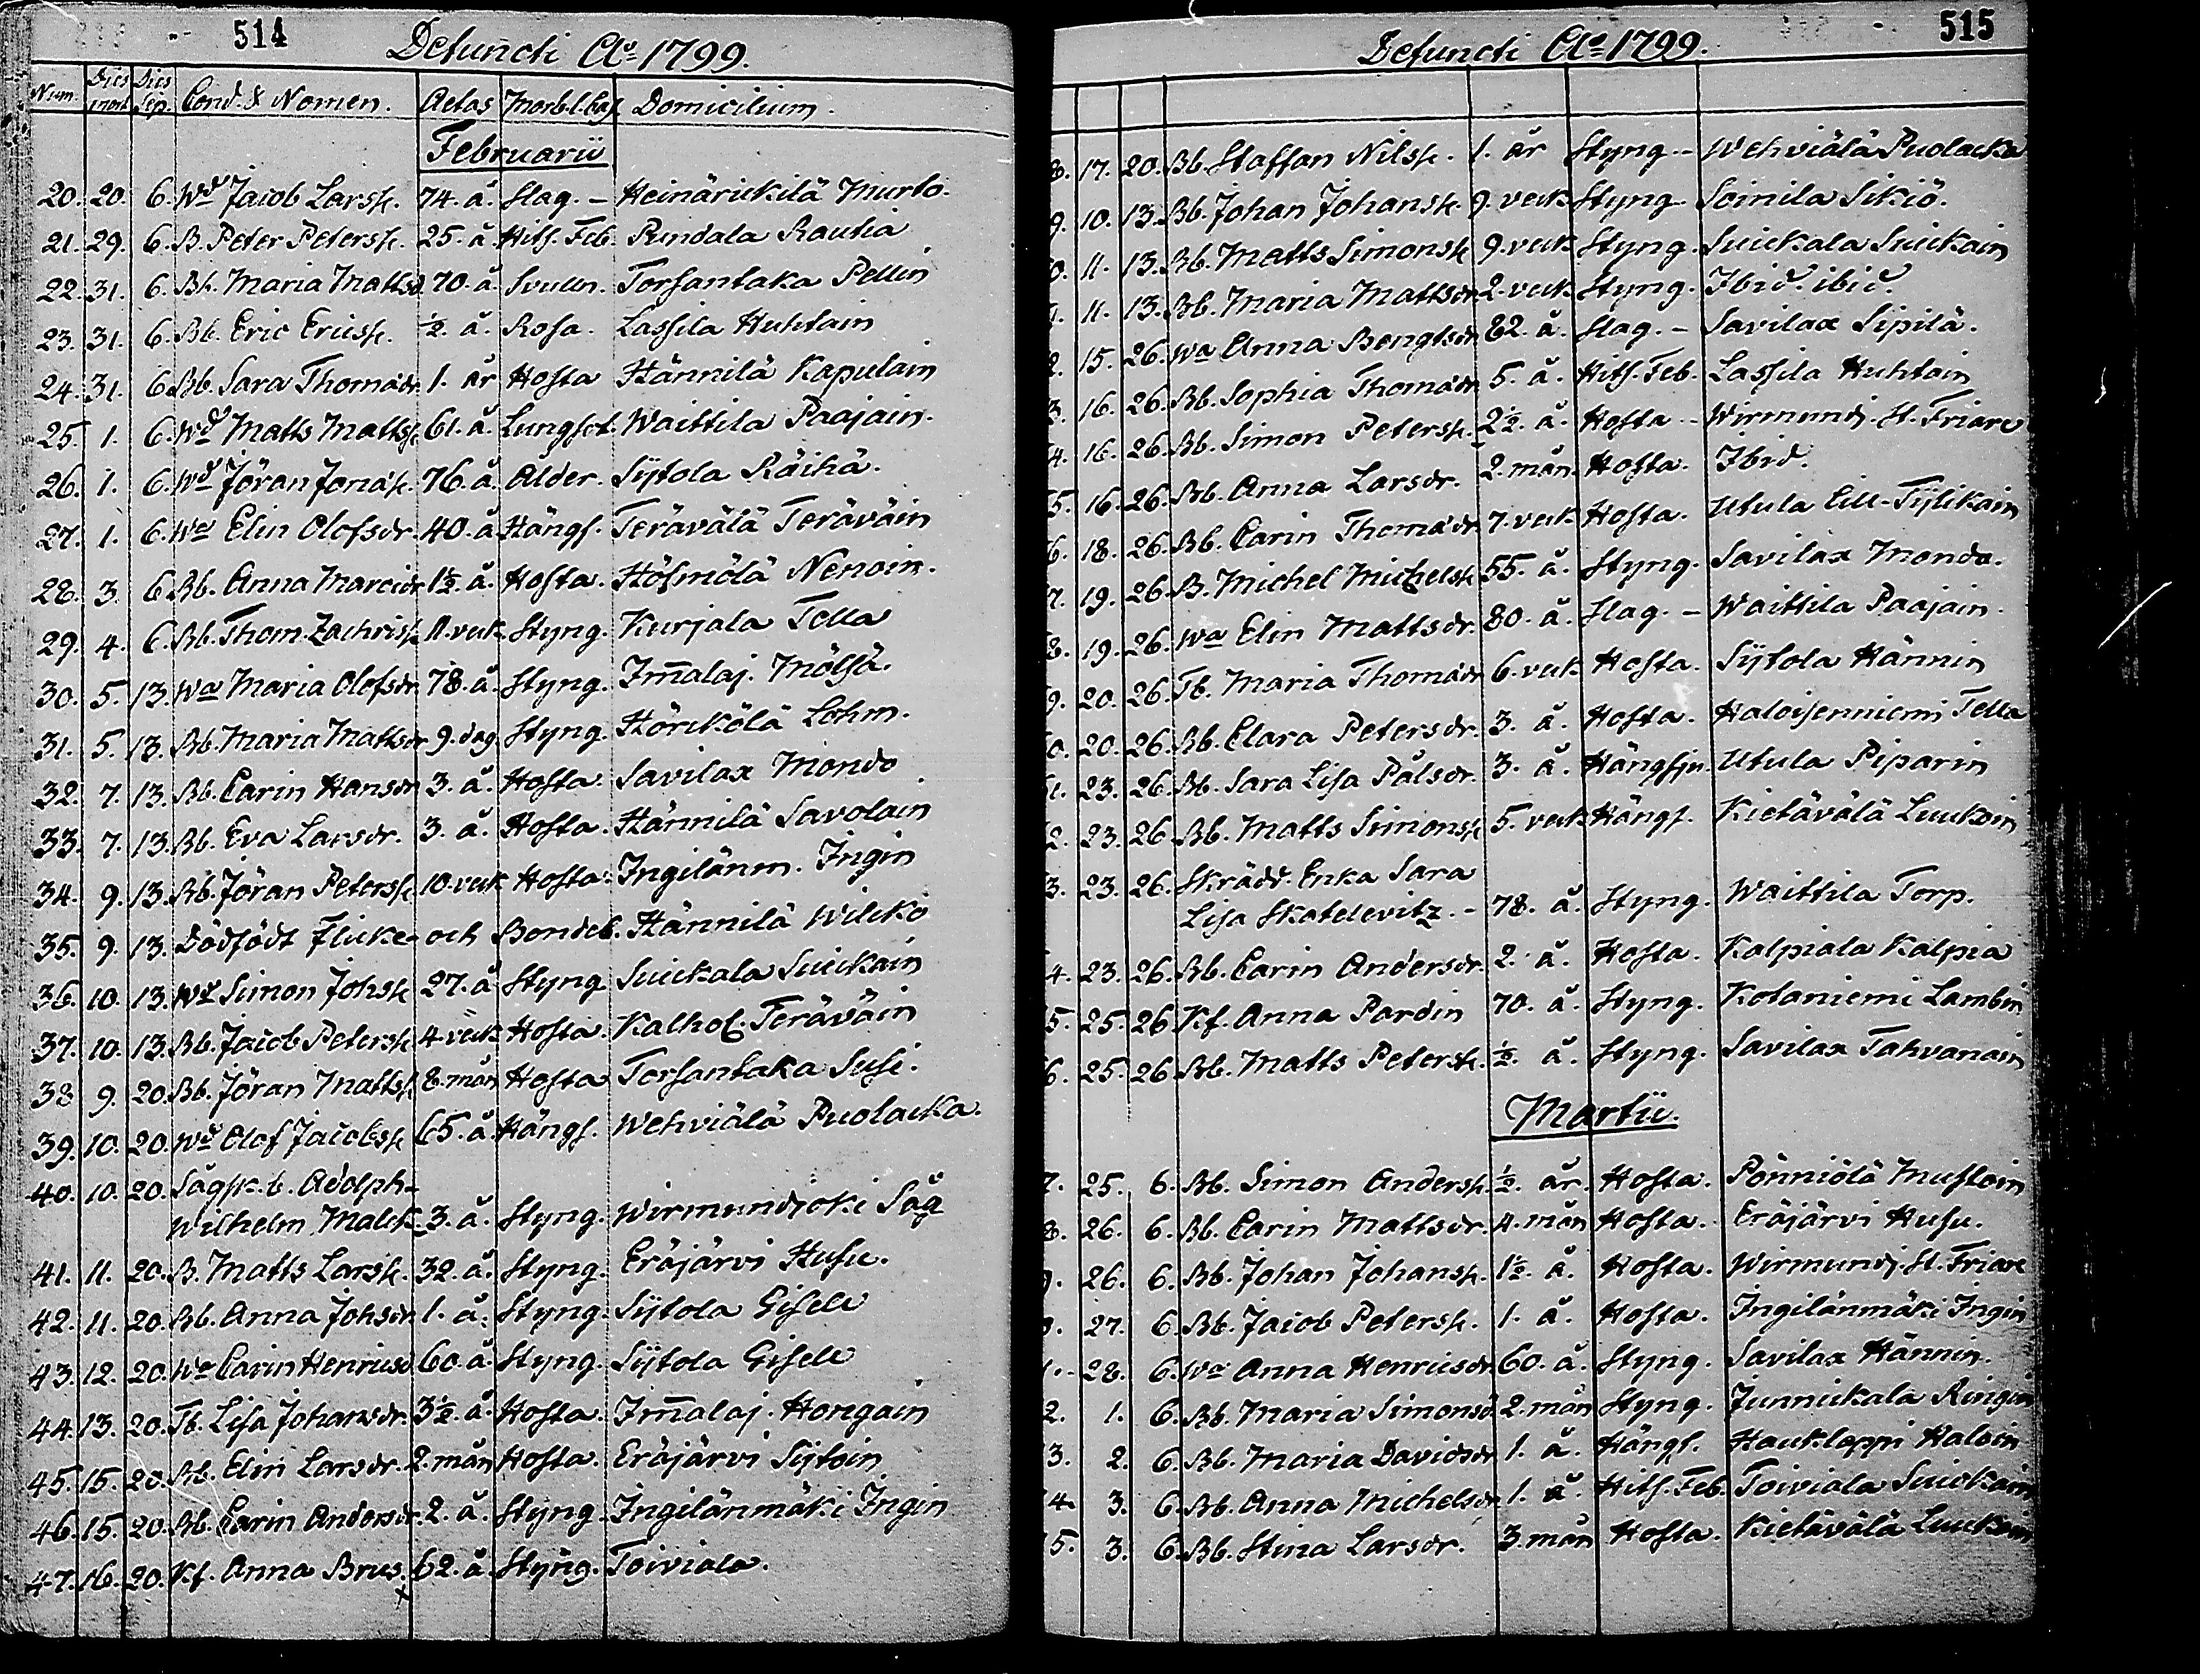 514
Defuncti Ao 1799.
Num. Dies mort. Dies Sep. Cond. & Nomen. Aetas Morb. l. Cas. Domicilium.
Februarii
20. 20. 6. Wd Jacob Larss. 74. å. Slag. – Heinärickilä Murto.
21. 29. 6. B. Peter Peterss. 25. å Hits. Feb. Rindala Rautia
22. 31. 6. Bh. Maria Mattsd. 70. å. Svulln. Torsantaka Pellin
23. 31. 6. Bb. Eric Ericss. ½. å. Rosa. Lassila Huhtain
24. 31. 6. Bb. Sara Thomædr. 1. år Hosta Hännilä Kapulain
25. 1. 6. Wd Matts Mattss. 61. å. Lungsot. Waittila Paajain.
26. 1. 6. Wd Jöran Jonæs. 76. å. Ålder. Sytola Räihä.
27. 1. 6. Wa Elin Olofsdr. 40. å. Hängs. Terävälä Teräväin
28. 3. 6. Bb. Anna Marcidr. 1½. å. Hosta. Hösmölä Nenoin.
29. 4. 6. Bb. Thom. Zachriss. 11. veck. Styng. Kurjala Tella
30. 5. 13. Wa Maria Olofsdr. 78. å. Styng. Im̄alaj. Mölsä.
31. 5. 13. Bb. Maria Mattsdr. 9. dag. Styng. Hörickölä Lohm.
32. 7. 13. Bb. Carin Hansdr. 3. å. Hosta. Savilax Mondo
33. 7. 13. Bb. Eva Larsdr. 3. å. Hosta. Hännilä Savolain
34. 9. 13. Bb. Jöran Peterss. 10. veck Hosta. Ingilänm. Ingin
35. 9. 13. Dödfödt flicke- och Bondeb. Hännilä Wilcko
36. 10. 13. Wd Simon Johss. 27. å Styng Suickala Suickain
37. 10. 13. Bb. Jacob Peterss. 4 veck Hosta. Kalhol. Teräväin
38. 9. 20. Bb. Jöran Mattss. 8. mån Hosta Torsantaka Susi.
39. 10. 20. Wd Olof Jacobss. 65. å. Hängs. Wehviälä Puolacka.
40. 10. 20. Sågsk. b. Adolph-
Wilhelm Malck. 3. å. Styng. Wirmundjoki Såg
41. 11. 20. B. Matts Larss. 32. å. Styng. Eräjärvi Husu.
42. 11. 20. Bb. Anna Johsdr. 1. å. Styng. Sytola Gisele
43. 12. 20. Wa Carin Henricsd. 60. å. Styng. Sytola Gisele
44. 13. 20. Tb. Lisa Johansdr. 3½. å. Hosta. Im̄alaj. Hongain
45. 15. 20. Bb. Elin Larsdr. 2. mån Hosta. Eräjärvi Sytoin
46. 15. 20. Bb. Carin Andersdr. 2. å. Styng. Ingilänmäki Ingin
47. 16. 20. Kf. Anna Brus. 62. å. Styng. Toiviala.
515
Defuncti Ao 1799.
8. 17. 20. Bb. Staffan Nilss. 1. år Styng. – Wehviälä Puolacka
9. 10. 13. Bb. Johan Johanss. 9. veck Styng Soinila Sikiö.
0. 11. 13. Bb. Matts Simonss. 9. veck Styng. Suickala Suickain
1. 11. 13. Bb. Maria Mattsdr. 2. veck Styng. Ibid. ibid.
2. 15. 26. Wa Anna Bengtsdr. 82. å. Slag. – Savilax Sipilä.
3. 16. 26. Bb. Sophia Thomædr. 5. å. Hits. Feb. Lassila Huhtain
4. 16. 26. Bb. Simon Peterss. 2½. å. Hosta – Wirmundj. St. Friare
5. 16. 26. Bb. Anna Larsdr. 2. mån. Hosta. Ibid.
6. 18. 26. Bb. Carin Thomædr. 7. veck Hosta. Utula Lill-Tylikain
7. 19. 26. B. Michel Michelss. 55. å. Styng. Savilax Mondo.
8. 19. 26. Wa Elin Mattsdr. 80. å. Slag. – Waittila Paajain.
9. 20. 26. Tb. Maria Thomædr. 6. veck Hosta. Sytola Hännin
0. 20. 26. Bb. Clara Petersdr. 3. å. Hosta. Haloisenniemi Tella
1. 23. 26. Bb. Sara Lisa Pålsdr. 3. å. Hängsju. Utula Piparin
2. 23. 26. Bb. Matts Simonss. 5. veck Hängs. Kietävälä Luukoin
3. 23. 26. Skrädd. Enka Sara
Lisa Skotelevitz. – 78. å. Styng. Waittila Torp.
4. 23. 26. Bb. Carin Andersdr. 2. å. Hosta. Kalpiala Kalpia
5. 25. 26 Kf. Anna Pardin 70. å. Styng. Kotaniemi Lambin
6. 25. 26 Bb. Matts Peterss. ½. å. Styng. Savilax Tahvanain
Martii.
7. 25. 6. Bb. Simon Anderss. ½. år. Hosta. Pönniölä Mustoin
8. 26. 6. Bb. Carin Mattsdr. 4. mån Hosta. Eräjärvi Husu.
9. 26. 6. Bb. Johan Johanss. 1½. å. Hosta. Wirmundj. St. Friare
0. 27. 6. Bb. Jacob Peterss. 1. å. Hosta. Ingilänmäki Ingin
1. 28. 6. Wa Anna Henricsdr. 60. å. Styng. Savilax Hännin.
2. 1. 6. Bb. Maria Simonsd. 2. mån Styng. Junnickala Ringin
3. 2. 6. Bb. Maria Davidsdr. 1. å. Hängs. Haukloppi Haloin
4. 3. 6. Bb. Anna Michelsdr. 1. å. Hits. Feb. Toiviala Suickain
5. 3. 6. Bb. Stina Larsdr. 3. mån Hosta. Kietävälä Luukoin